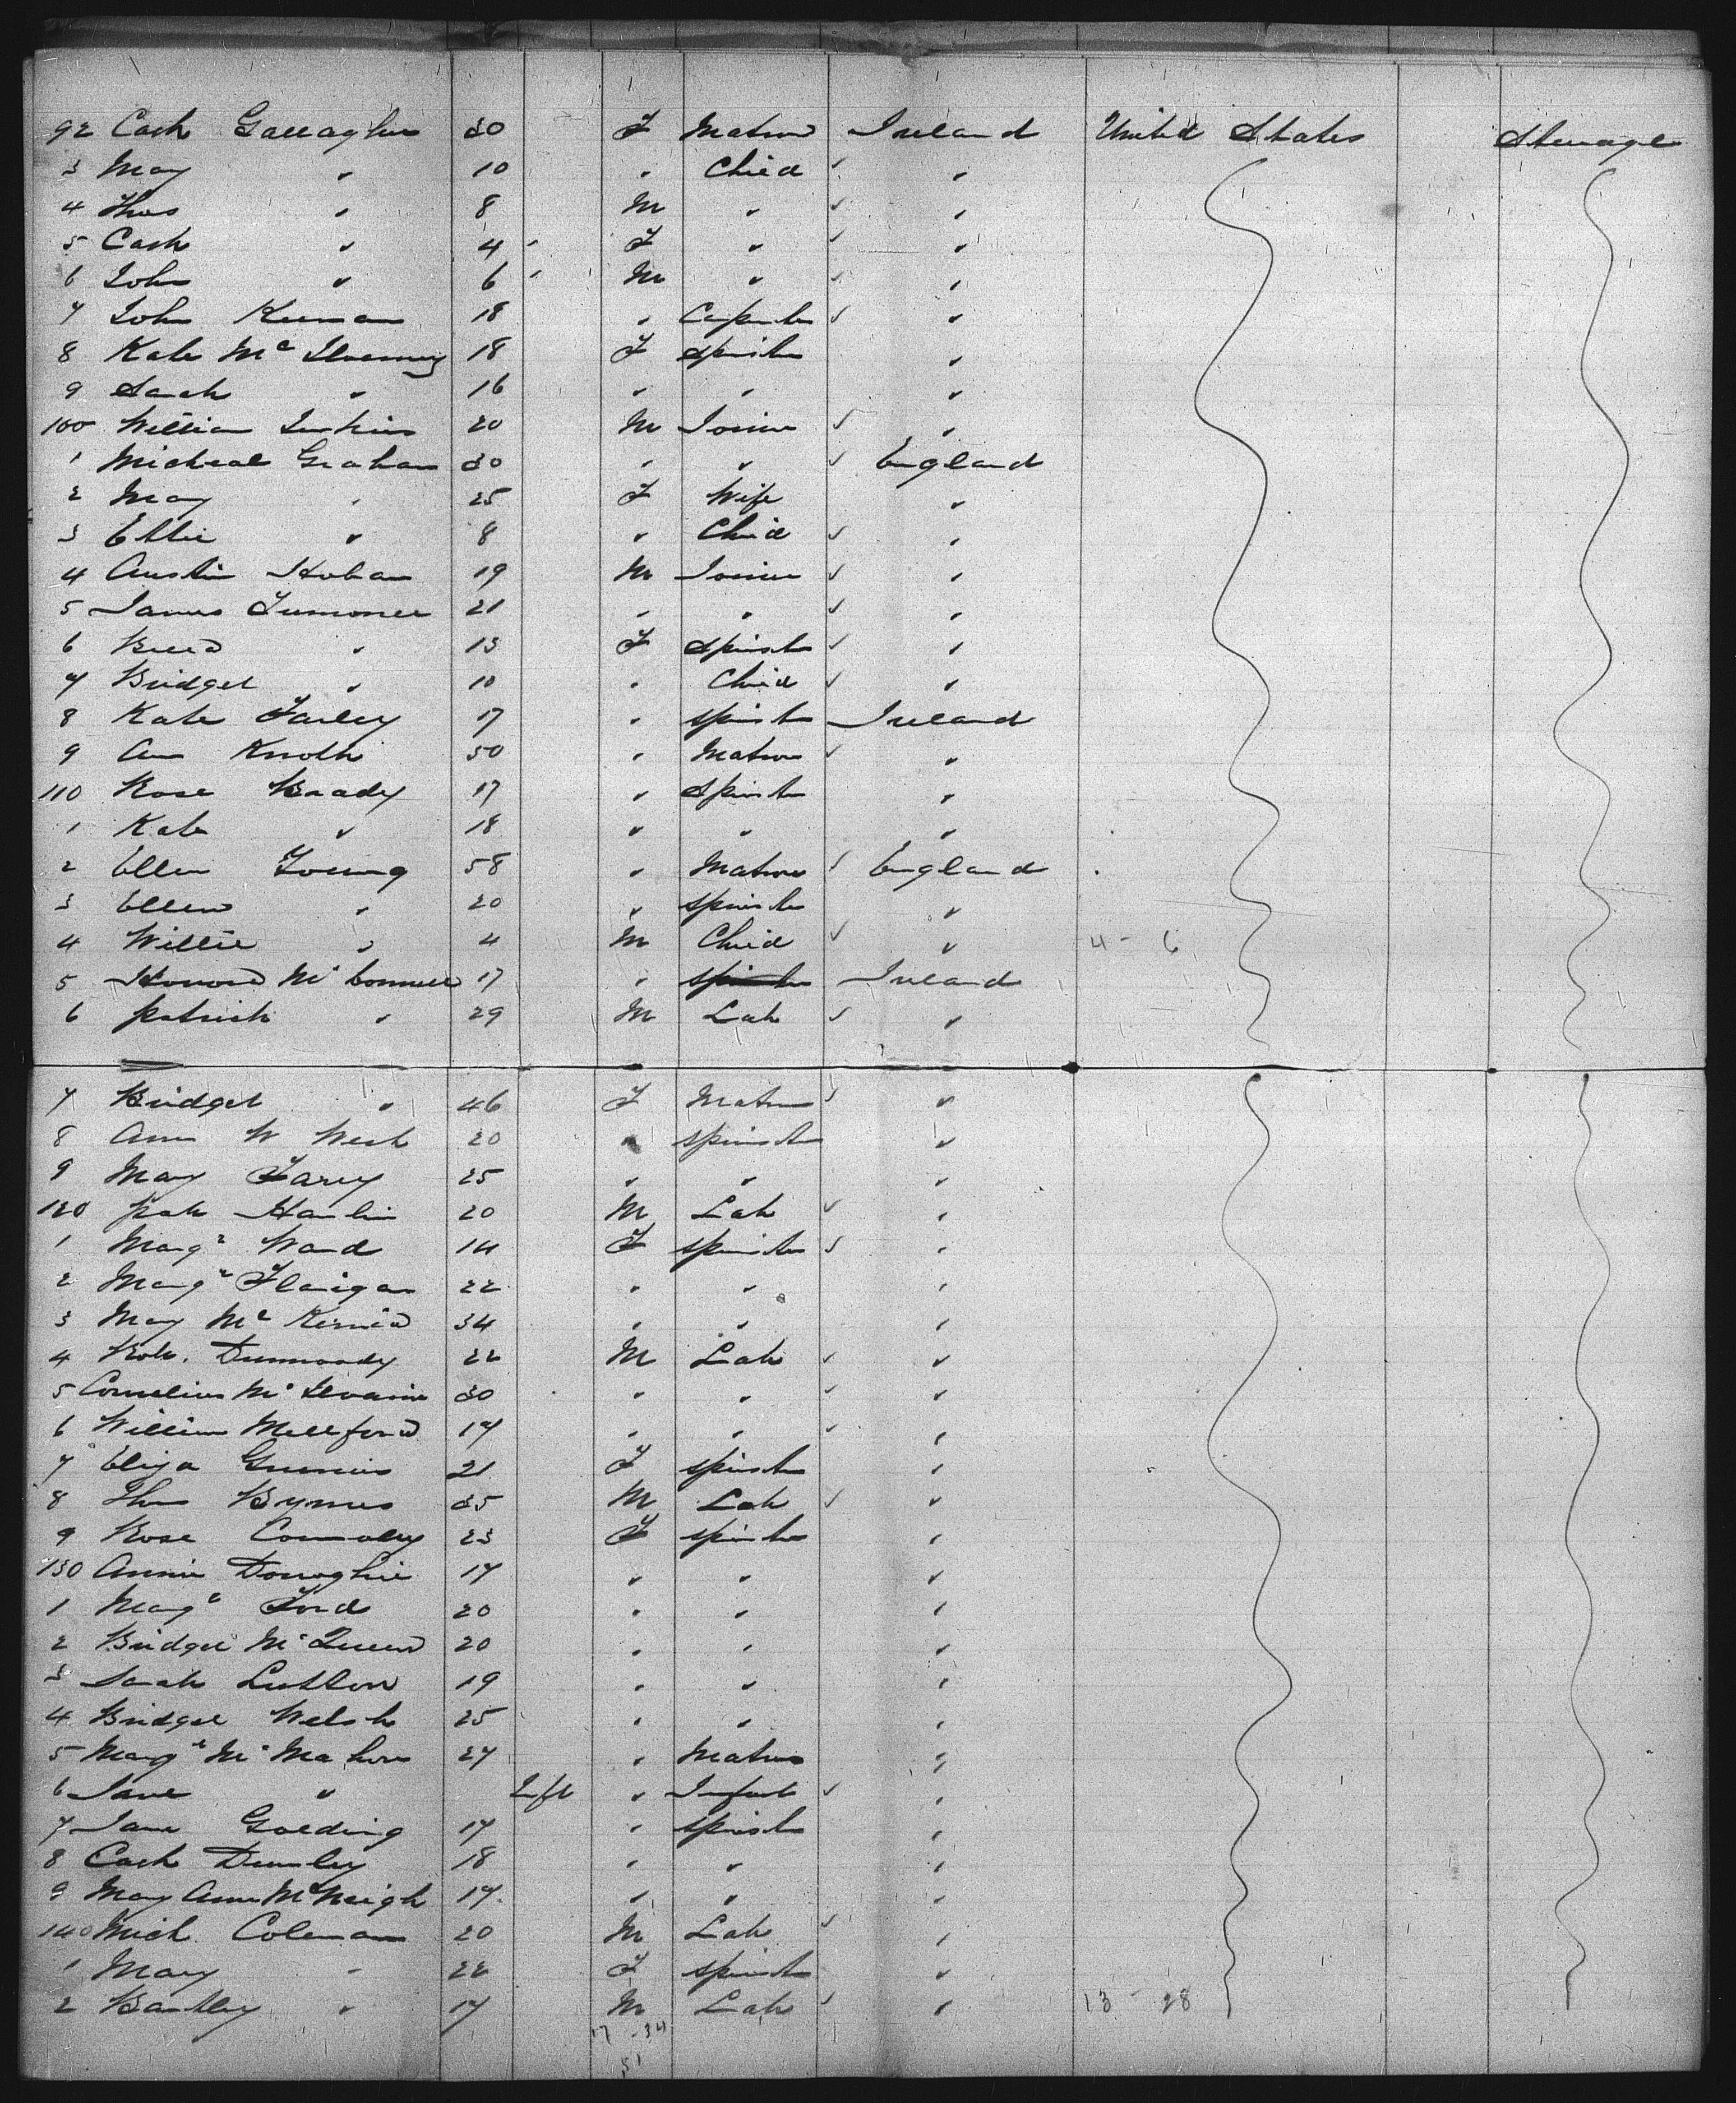 92 Cath Gallagher 30 F Matron Ireland United States Steerage
3 Mary " 10 " Child "
4 Thos " 8 M " "
5 Cath " 4 F " "
6 John " 6 M " "
7 John Keenan 18 " Carpenter "
8 Kate Mc 18 F Spinster "
9 Sarah " 16 " " "
100 William 20 M Joiner "
1 Micheal Graham 30 " " England
2 Mary " 25 F Wife "
3 Ellie " 8 " Child "
4 Austin Hoban 19 M Joiner "
5 James 21 " " "
6 " 13 F Spinster "
7 Bridget " 10 " Child "
8 Kate Farley 17 " Spinster Ireland
9 Ann 50 " Matron "
110 Rose Brady 17 " Spinster "
1 Kate " 18 " " "
2 Ellen Young 58 " Matron England
3 Ellen " 20 " Spinster "
4 Willie " 4 M Child " 4 - 6
5 Honora Mc Connell 17 " Ireland
6 Patrick " 29 M Lab "
7 Bridget " 46 F Matron "
8 Ann W 20 " Spinster "
9 Mary 25 " " "
120 Pat Hanlin 20 M Lab "
1 Margt Ward 14 F Spinster "
2 Margt Flanigan 22 " " "
3 Mary Mc 34 " " "
4 Robt. Dunwoody 22 M Lab "
5 Cornelius Mc Ilvaine 30 " " "
6 William Mellford 17 " " "
7 Eliza 21 F Spinster "
8 Thos Byrnes 35 M Lab "
9 Rose Connolly 23 F Spinster "
130 Annie Donoghue 17 " " "
1 Margt Ford 20 " " "
2 Bridget Mc Queen 20 " " "
3 Sarah Lutton 19 " " "
4 Bridget Welsh 25 " " "
5 Margt Mc Mahon 27 " Matron "
6 Jane " Inft " Infant "
7 Jane Golding 17 " Spinster "
8 Cath 18 " " "
9 Mary Ann 17 " " "
140 Mich Coleman 20 M Lab "
1 Mary " 22 F Spinster "
2 Bartley " 17 M Lab " 13 - 28
17 - 34
51